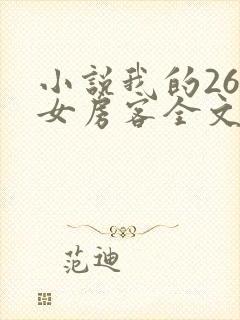 小説我的26
女房客全文
范迪